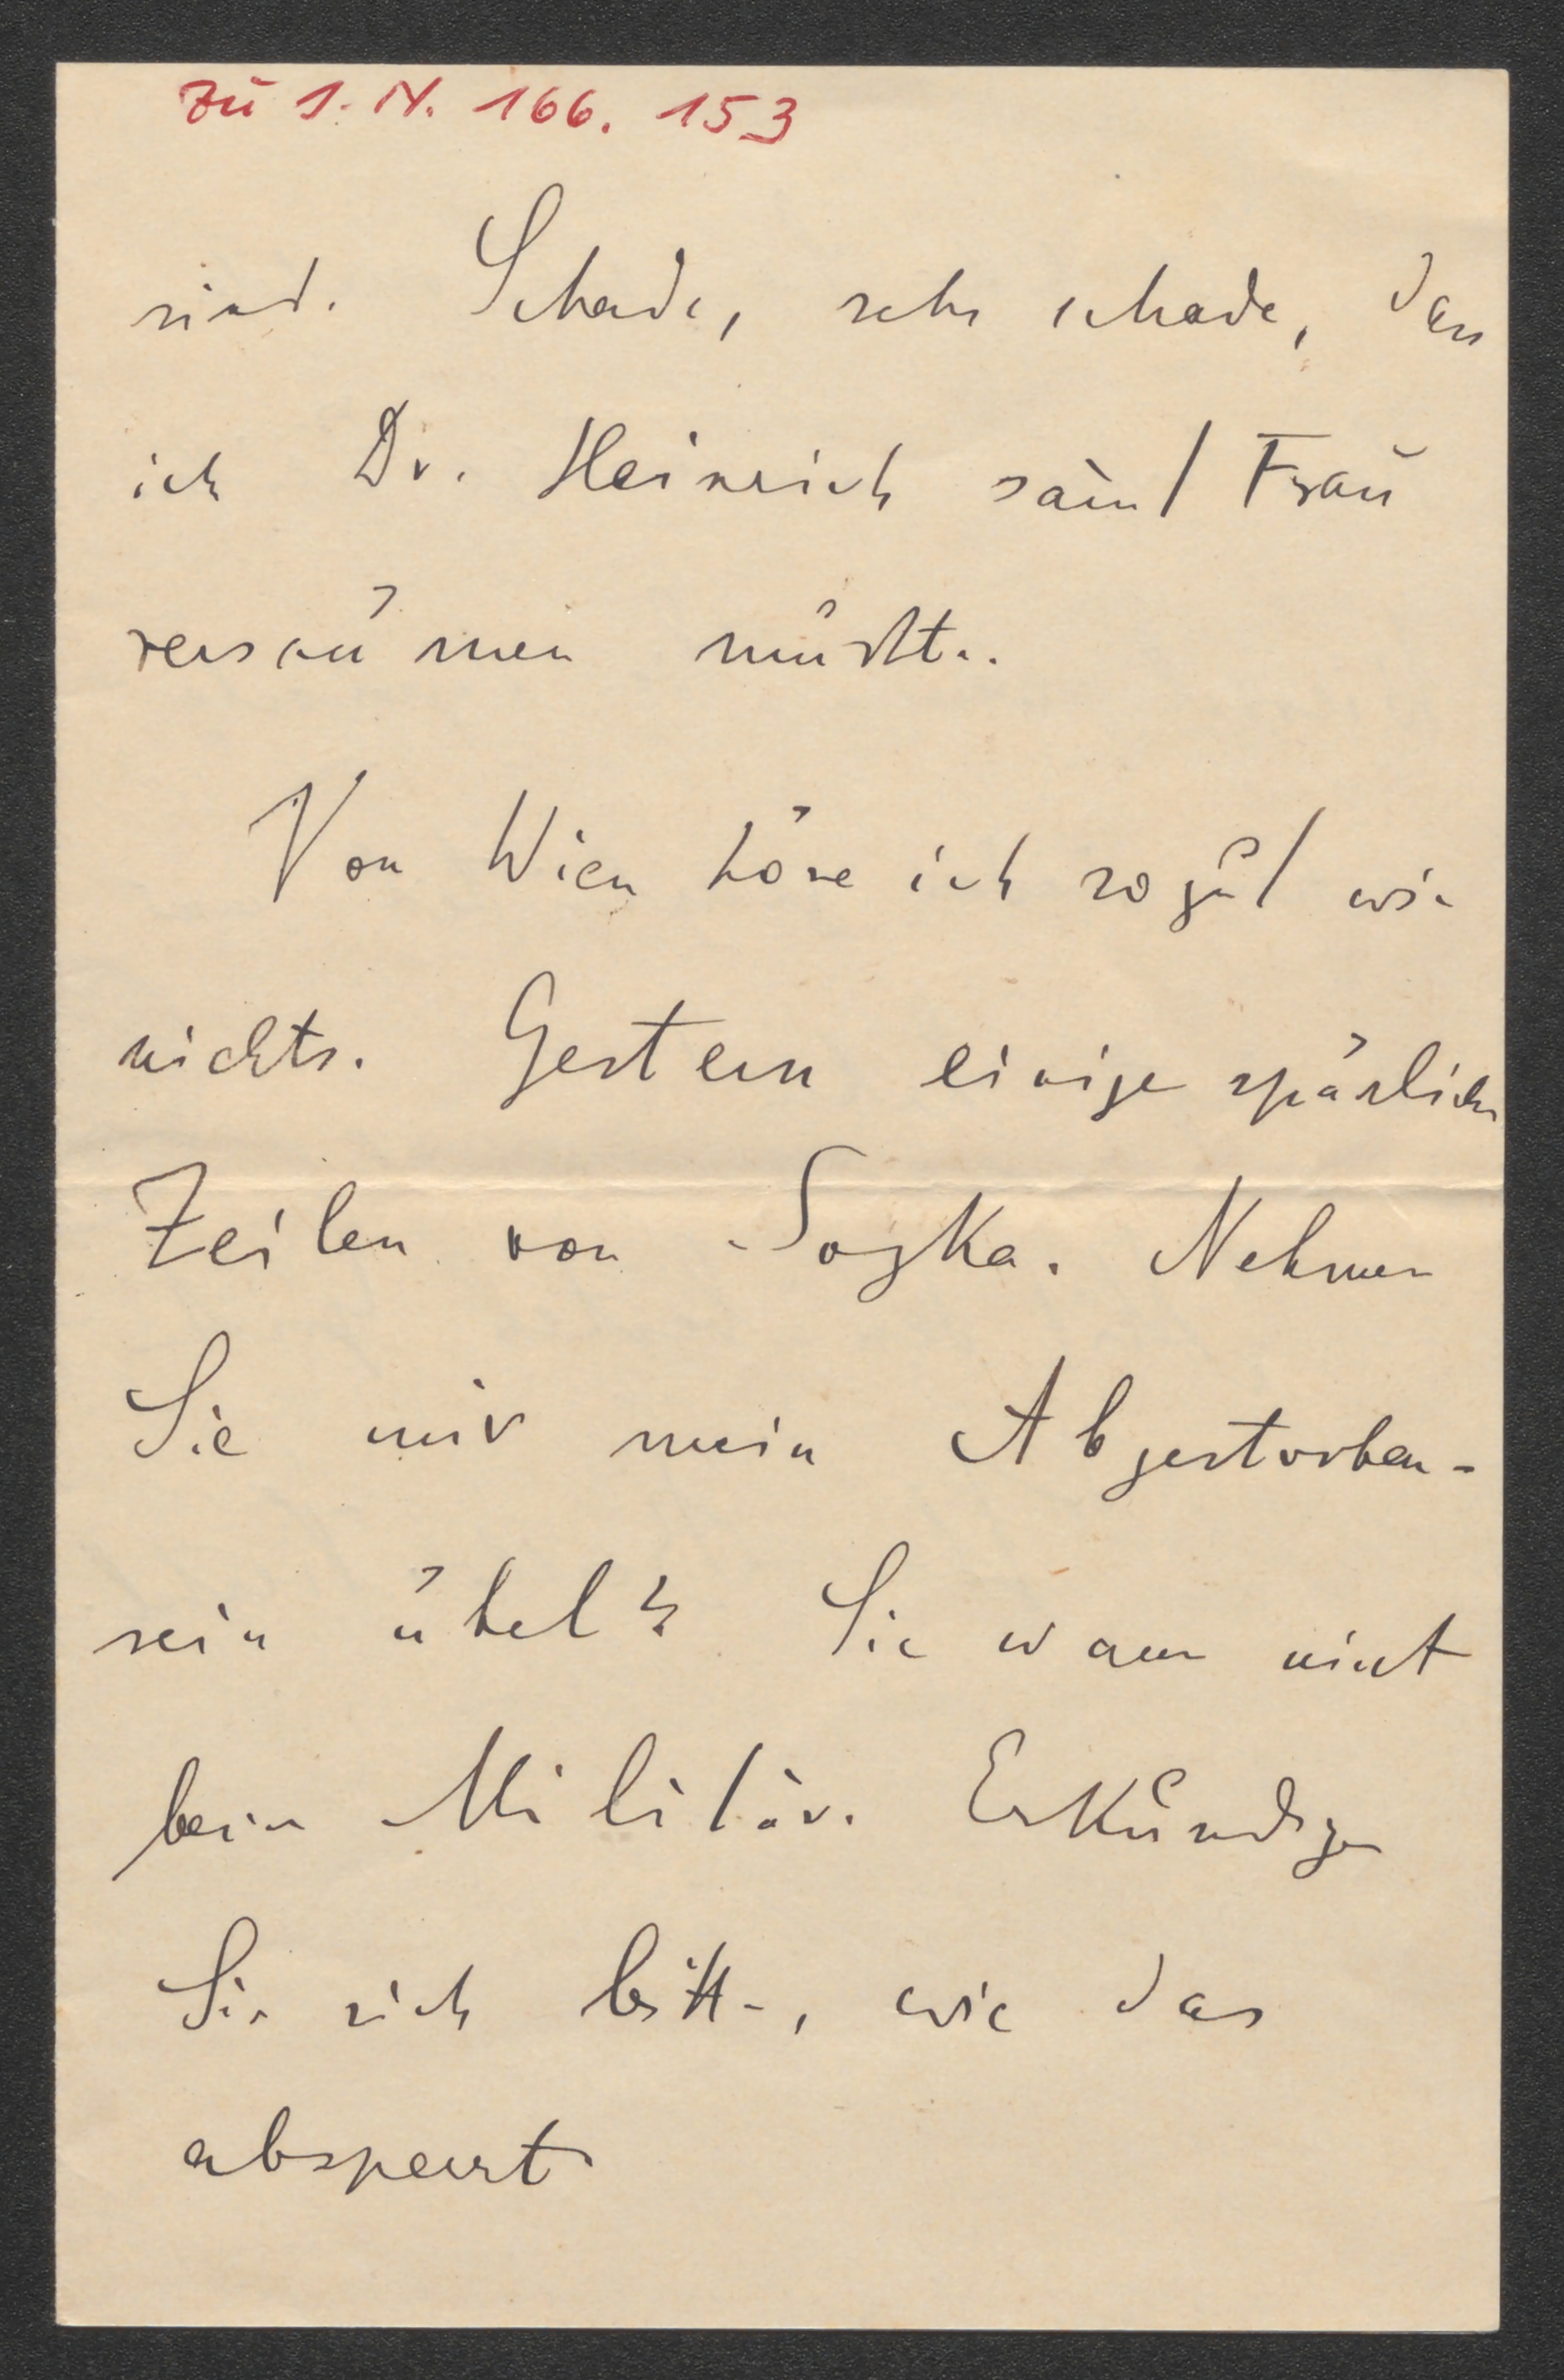 zu I. N. 166.153
sind. Schade, sehr schade, dass
ich Dr. Heinrich samt Frau
versäumen musste.
Von Wien höre ich so gut wie
nichts. Gestern einige spärliche
Zeilen von Soyka. Nehmen
Sie mir mein Abgestorben-
sein übel? Sie waren nicht
beim Militär. Erkundigen
Sie sich bitte, wie das
absperrt